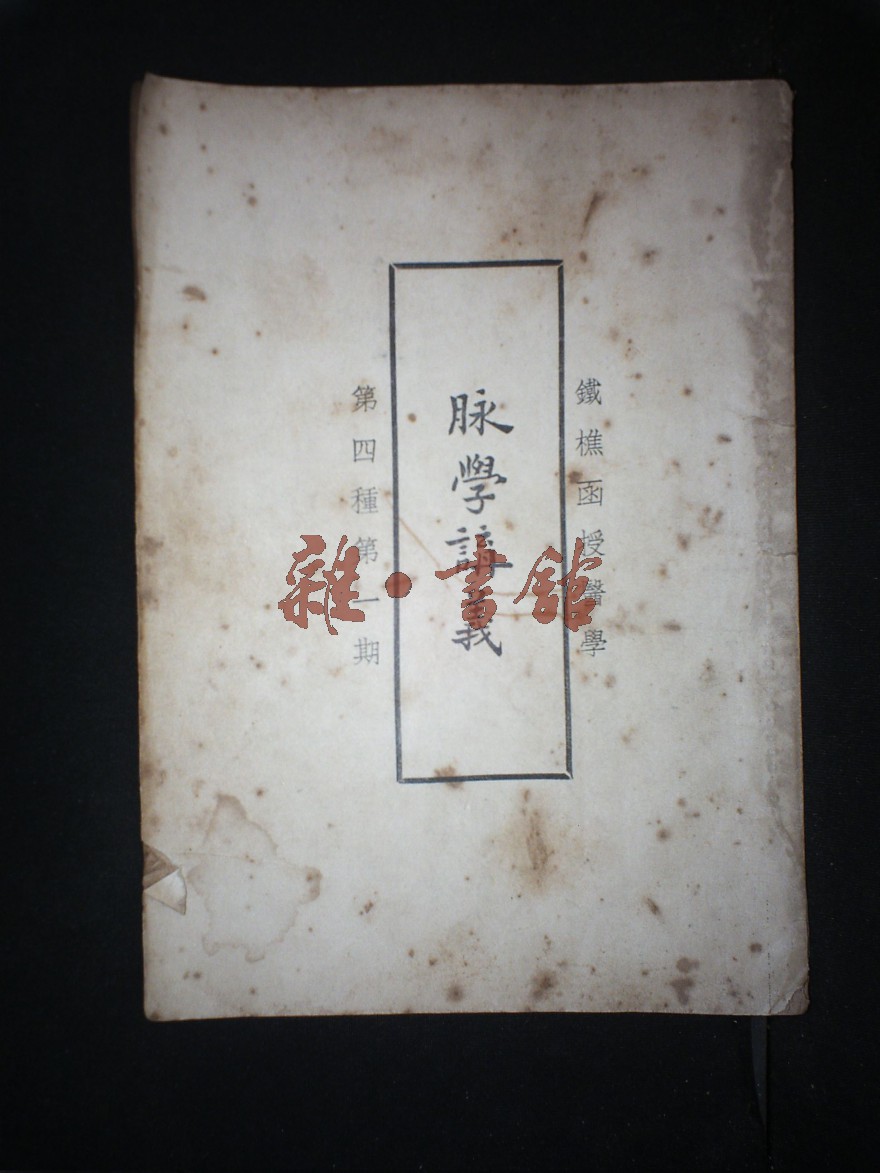 鐵樵函授醫學
脉學講義
第四種第一期
雜·書館